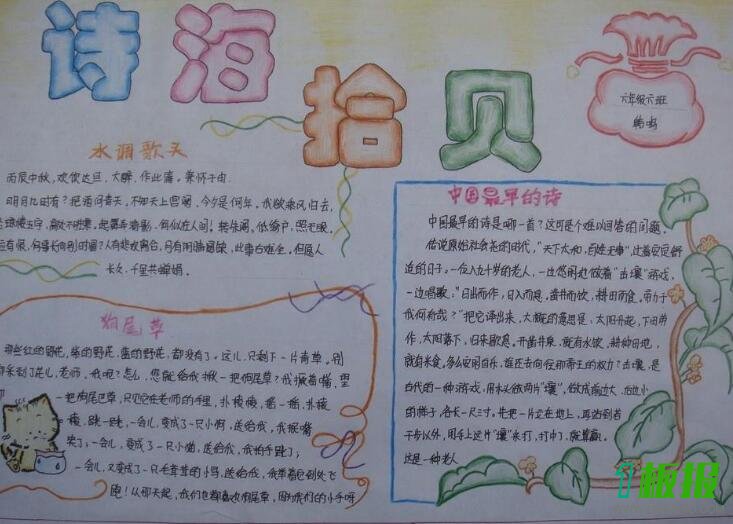 诗海拾贝
六年级六班
水调歌头
丙辰中秋,欢饮达旦,大醉,作此篇。兼怀子由.
明月几时有?把酒问青天,不知天上宫阙,今夕是何年,我欲乘风归去,
琼楼玉宇,高处不胜寒。起舞弄清影,何似在人间!转朱阁,低绮户,照无眠。
应有恨,何事长向别时圆?人有悲欢离合,月有阴晴圆缺,此事古难全。但愿人
长久,千里共婵娟。
中国最早的诗
中国最早的诗是哪一首?这可是个难以回答的问题。
传说原始社会尧的时代,"天下太和,百姓无事"过着安定舒
适的日子。一位八九十岁的老人,一边悠闲地做着"击壤"游戏,
一边唱歌:"日出而作,日入而息。凿井而饮,耕田而食。帝力于
我何有哉?"把它译出来,大概的意思是:太阳升起,下田劳
作,太阳落下,归来歇息。开凿井泉,就有水饮,耕种田地,
就有米食。多么安闲自乐,谁还去向往那帝王的权力?击壤,是
古代的一种游戏,用木头做两片"壤",做成前边大,后边小
的样子,各长一尺三寸。先把一片立在地上,再站到若
干步以外,用手上这片"壤"来打,打中了,就算赢。
这是一种老人
狗尾草
那些红的野花,紫的野花,蓝的野花,都没有了。这儿,只剩下一片青草。别
都采到了花儿,老师,我呢?怎么,您能给我揪一把狗尾草?我撅着嘴,望
一把狗尾巴草,只见它在老师的手里,扑棱棱,摇一摇,扑棱
棱,跳一跳,一会儿,变成了一只小狗,送给我,我抿嘴
笑了;一会儿,变成了一只小猫,送给我,我拍手跳了;
一会儿,又变成了一只毛茸茸的小马,送给我,我举着它到处飞
跑!从那天起,我们也都喜欢狗尾草,因为我们的小手呀
板报